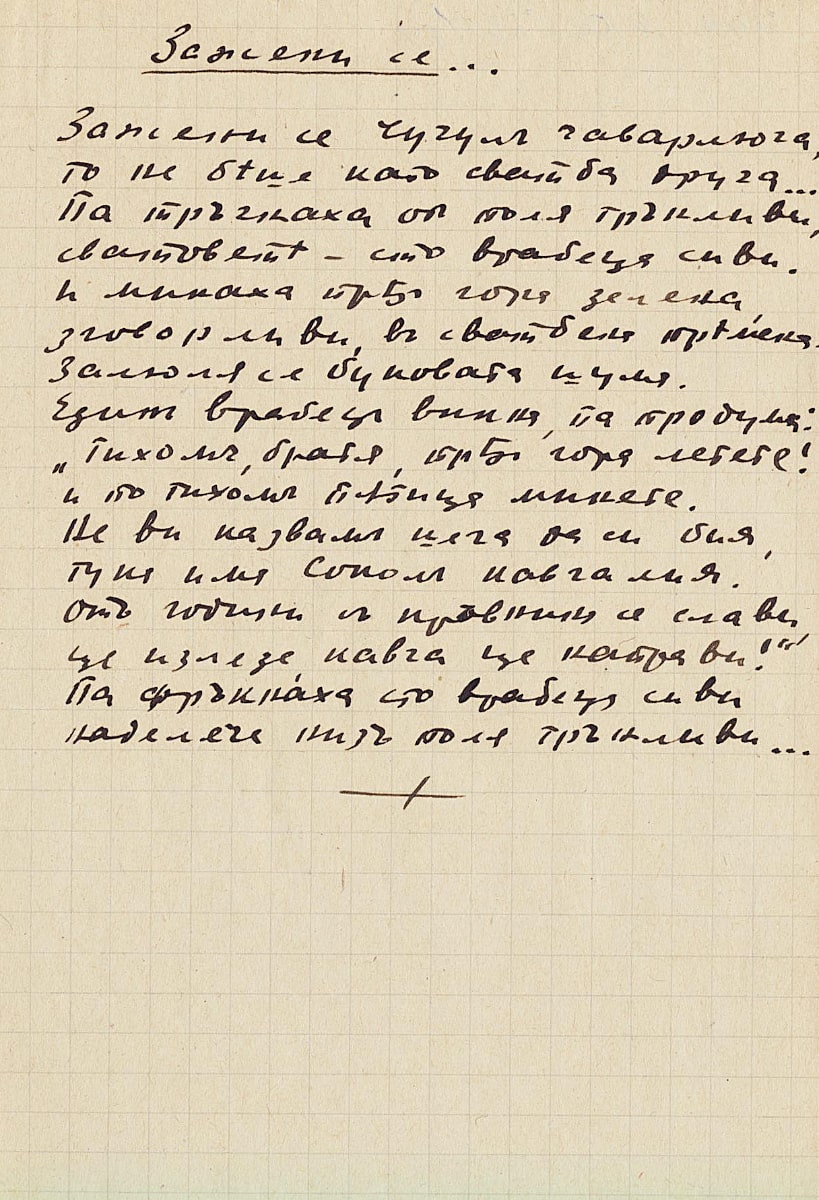 Зажени се...
Зажени се Чучулъ гаварлюга,
то не бѣше като сватба друга...
Па тръгнаха от поля трънливи,
сватоветѣ – сто врабеца сиви.
И минаха прѣз гора зелена,
зговорливи, въ сватбена прѣмена.
Залюля се буковата шума.
Единъ врабецъ викна, па продума:
„Тихомъ, братя, прѣз гора летете!
и по тихомъ пѣтица минете.
Не ви казвамъ шега да си бия,
тука има Соколъ кавгалия.
отъ години съ крѣвникъ се слави
ще излезе, кавга ще направи!“
Па фръкнаха сто врабеца сиви
надалече низъ поля трънливи...